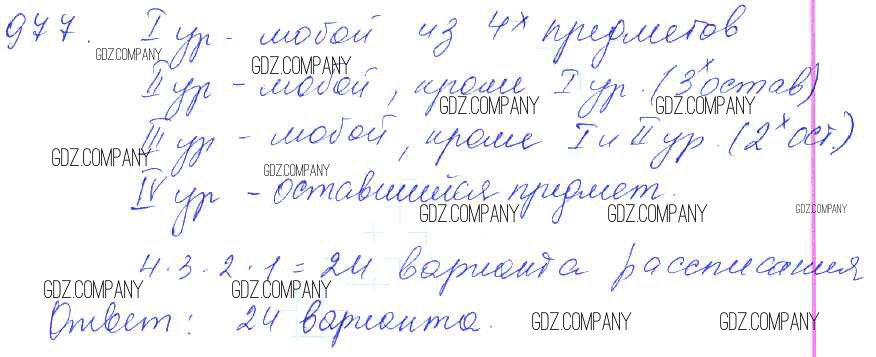 977. I ур - любой из 4х предметов
II ур - любой, кроме I ур. (3х остав)
III ур - любой, кроме I и II ур. (2х ост.)
IV ур - оставшийся предмет.
4·3·2·1 = 24 варианта рассписания
Ответ: 24 варианта.
GDZ.COMPANY
GDZ.COMPANY
GDZ.COMPANY
GDZ.COMPANY
GDZ.COMPANY
GDZ.COMPANY
GDZ.COMPANY
GDZ.COMPANY
GDZ.COMPANY
GDZ.COMPANY
GDZ.COMPANY
GDZ.COMPANY
GDZ.COMPANY